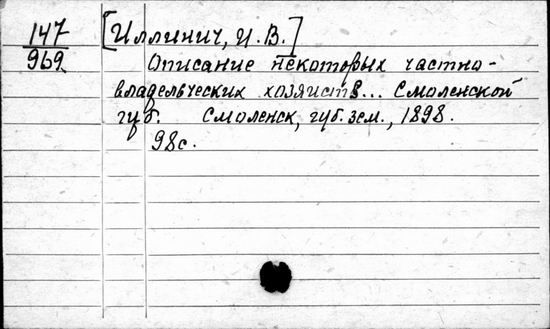 147 [Иллинич, И.В.]
969 Описание некоторых частно-
владельческих хозяйств... Смоленской
губ. Смоленск, губ. зем., 1898.
98с.